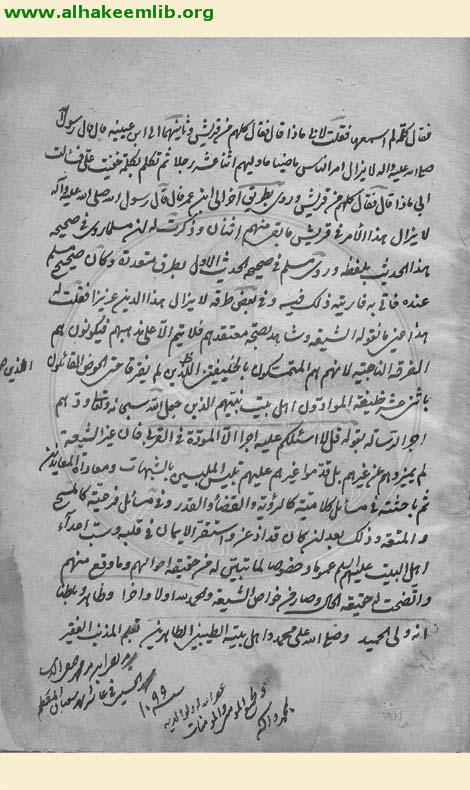 www.alhakeemlib.org
فقال كلمة لم اسمعها فقلت لابي ماذا قال فقال كلهم من قريش وثانيهما الى ابن عيينه قال قال رسول الله
صلى الله عليه واله لا يزال امر الناس ماضيا ما وليهم اثنا عشر رجلا ثم تكلم بكلمة خفيت علي فسالت
ابي ماذا قال فقال كلهم من قريش وروى بطريق اخر الى ابن عمر قال قال رسول الله صلى الله عليه واله
لا يزال هذا الامر في قريش ما بقي منهم اثنان وذكرت له ان مسلما روى في صحيحه
هذا الحديث بلفظه وروى مسلم في صحيحه الحديث الاول بطرق متعددة وكان صحيح مسلم
عنده فاتى به فاريته ذلك فيه وفي بعض طرقه لا يزال هذا الدين عزيزا فقلت له
هذا عين ما تقوله الشيعه وشاهد بصحة معتقدهم فلا يتم الا على مذهبهم فيكونون هم
الفرقه الناجية لانهم هم المتمسكون بالخليفتين اللذين لم يفترقا حتى الحوض القائلون
باثني عشر خليفة الموادون اهل بيت نبيهم الذين جعل الله سبحانه وتعالى ودهم
اجر الرسالة بقوله قل لا اسئلكم عليه اجرا الا المودة في القربى فان غير الشيعة
لم يميزوهم عن غيرهم بل قدموا غيرهم عليهم تلبس الملبسين بالشبهات ومعاداة المعاندين
ثم باحثته في مسائل كلامية كالرؤية والقضاء والقدر وفي مسائل فرعية كالمسح
والمتعة وذلك بعد ان كان قد اذعن واستقر الايمان في قلبه وسب اعداء
اهل البيت عليهم السلم عموما وخصوصا لما تبين له من حقيقة احوالهم وما وقع منهم
واتضحت له حقيقة الحال وصار من خواص الشيعة والحمد لله اولا واخرا وظاهرا وباطنا
انه ولي الحميد وصلى الله على محمد واهل بيته الطيبين الطاهرين بقلم المذنب الفقير
١٠٩٩
غفر الله له ولوالديه
ولجميع المؤمنين والمؤمنات
بمحمد واله